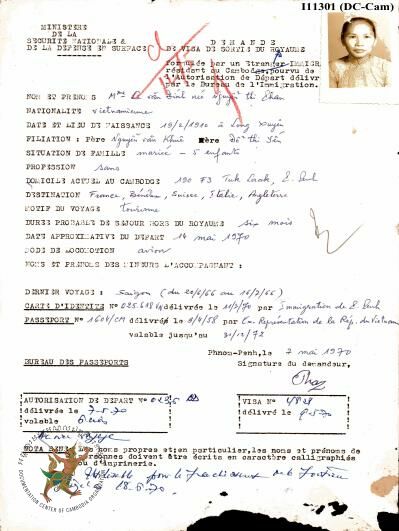 I11301 (DC-Cam)
MINISTERE
DE LA
SECURITE NATIONALE &
DE LA DEFENSE EN SURFACE
DEMANDE
DE VISA DE SORTIE DU ROYAUME
formulée par un Etranger IMMIGR
résidant au Cambodge, pourvu de
l'Autorisation de Départ délivr
par le Bureau de l'Immigration.
NOM ET PRENOMS Mme Lê văn Đinh née Nguyễn thị
NATIONALITE vietnamienne
DATE ET LIEU DE NAISSANCE 19/2/1910 à Long Xuyên
FILIATION : Père Nguyễn văn Khuê Mère Đỗ thị
SITUATION DE FAMILLE mariée - 5 enfants
PROFESSION sans
DOMICILE ACTUEL AU CAMBODGE 190 F3 Tuk Laak,
DESTINATION France, Suisse, Italie, Angleterre
MOTIF DU VOYAGE tourisme
DUREE PROBABLE DE SEJOUR HORS DU ROYAUME six mois
DATE APPROXIMATIVE DU DEPART 14 mai 1970
MODE DE LOCOMOTION avion
NOMS ET PRENOMS DES MINEURS L'ACCOMPAGNANT :
DERNIER VOYAGE : Saigon (du 20/6/66 au 16/7/66)
CARTE D'IDENTITE N° délivrée le 11/3/70 par Immigration de
PASSEPORT N° 1604/CM délivré le par la Représentation de la Rép. du Vietnam
valable jusqu'au 31/12/72
Phnom-Penh, le 7 mai 1970
BUREAU DES PASSEPORTS
Signature du demandeur,
AUTORISATION DE DEPART N°
délivrée le 7-5-70
valable 6 mois
VISA N° 4828
délivré le
NOTA BENE Les noms propres et, en particulier, les noms et prénoms de
personnes doivent être écrits en caractère calligraphiés
ou d'imprimerie.
DOCUMENTATION CENTER OF CAMBODIA